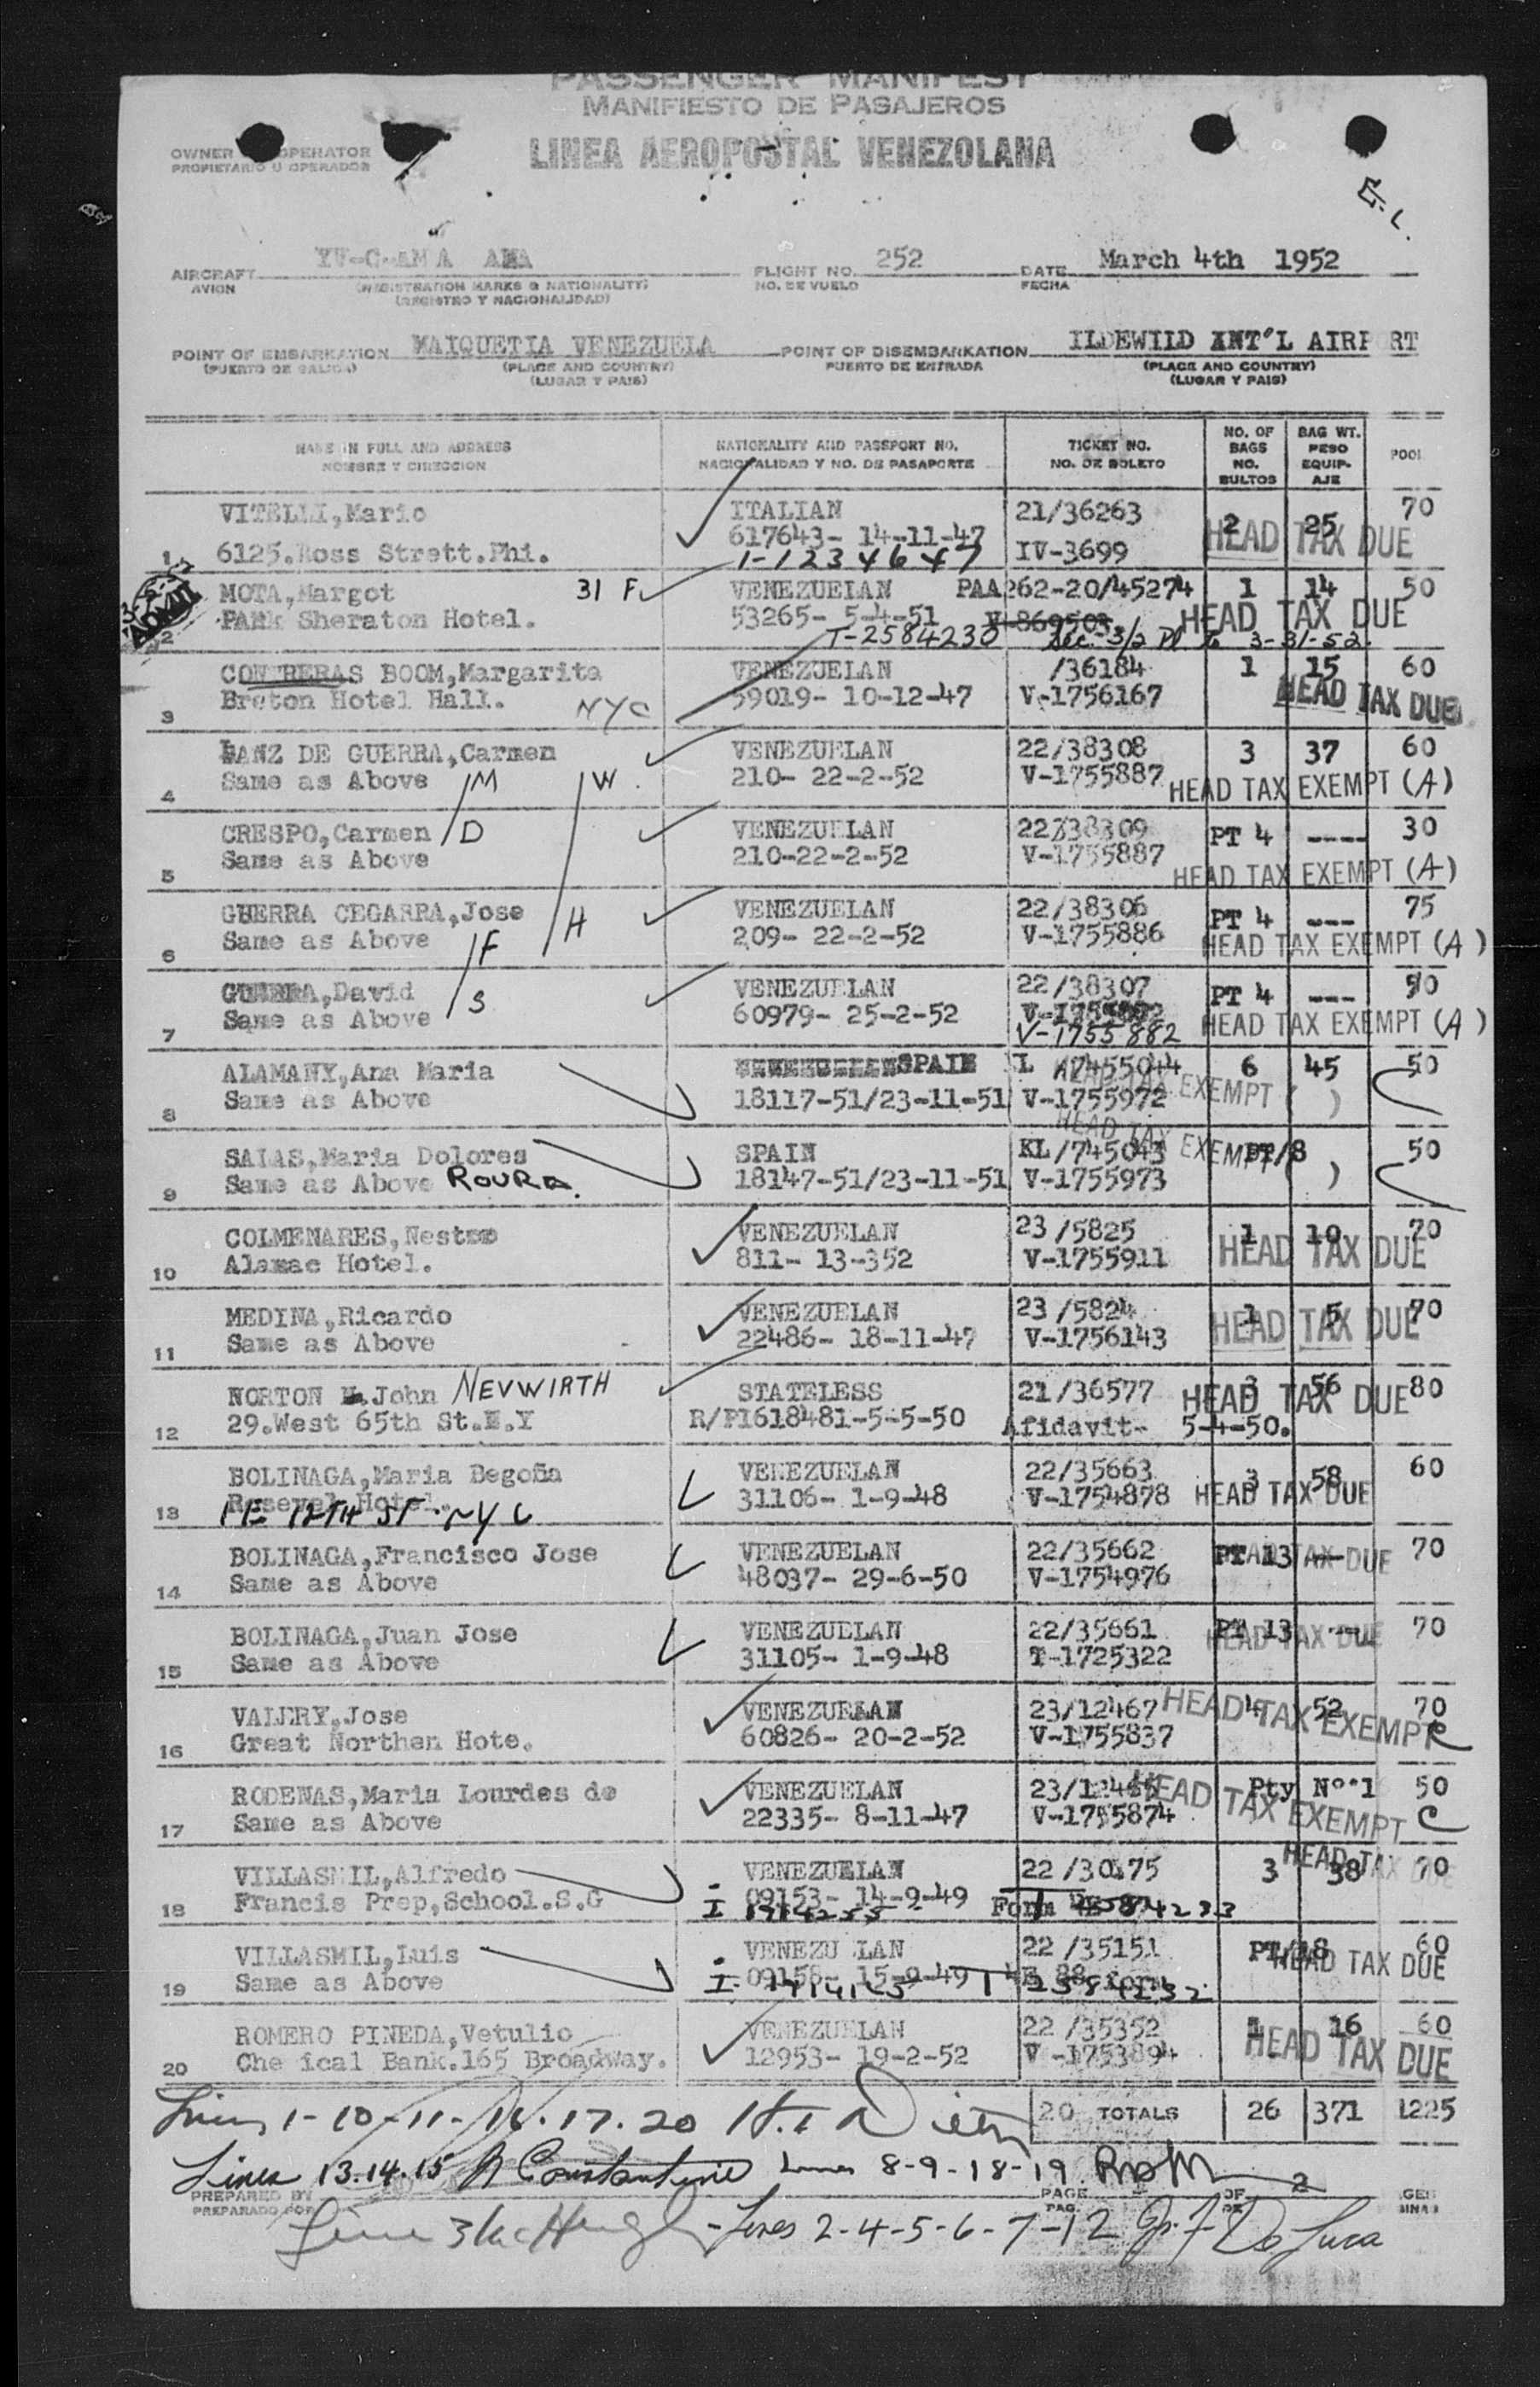 PASSENGER MANIFEST
MANIFIESTO DE PASAJEROS
OWNER OPERATOR
PROPIETARIO U OPERADOR
LINEA AEROPOSTAL VENEZOLANA
E.L.
AIRCRAFT YV-C-AMA AMA FLIGHT NO. 252 DATE March 4th 1952
AVION (REGISTRATION MARKS & NATIONALITY) NO. DE VUELO FECHA
(REGISTRO Y NACIONALIDAD)
POINT OF EMBARKATION MAIQUETIA VENEZUELA POINT OF DISEMBARKATION ILDEWILD INT'L AIRP RT
(PUERTO DE SALIDA) (PLACE AND COUNTRY) PUERTO DE ENTRADA (PLACE AND COUNTRY)
(LUGAR Y PAIS) (LUGAR Y PAIS)
NAME IN FULL AND ADDRESS NATIONALITY AND PASSPORT NO. TICKET NO. NO. OF BAGS BAG WT. POOL
NOMBRE Y DIRECCION NACIONALIDAD Y NO. DE PASAPORTE NO. DE BOLETO NO. BULTOS PESO EQUIPAJE
VITELLI,Mario ITALIAN 21/36263 2 25 70
1 6125.Ross Strett.Phi. 617643- 14-11-47 IV-3699 HEAD TAX DUE
1-1234647
MOTA,Margot 31 F VENEZUELAN PAA262-20/45274 1 14 50
ADMIT
2 PARK Sheraton Hotel. 53265- 5-4-51 V-869503. HEAD TAX DUE
T-2584230 Sec. 3/2 3-31-52.
CONTRERAS BOOM,Margarita VENEZUELAN /36184 1 15 60
3 Breton Hotel Hall. NYC 59019- 10-12-47 V-1756167 HEAD TAX DUE
LANZ DE GUERRA,Carmen VENEZUELAN 22/38308 3 37 60
4 Same as Above M W 210- 22-2-52 V-1755887 HEAD TAX EXEMPT (A)
CRESPO,Carmen D VENEZUELAN 22/38309 PT 4 ---- 30
5 Same as Above 210-22-2-52 V-1755887 HEAD TAX EXEMPT (A)
GUERRA CEGARRA,Jose H VENEZUELAN 22/38306 PT 4 --- 75
6 Same as Above F 209- 22-2-52 V-1755886 HEAD TAX EXEMPT (A)
GUERRA,David S VENEZUELAN 22/38307 PT 4 --- 50
7 Same as Above 60979- 25-2-52 V-1755882 HEAD TAX EXEMPT (A)
ALAMANY,Ana Maria SPAIN L /7455044 6 45 50
8 Same as Above 18117-51/23-11-51 V-1755972 HEAD TAX EXEMPT ( )
SALAS,Maria Dolores SPAIN KL/745043 PT/8 50
9 Same as Above ROURA. 18147-51/23-11-51 V-1755973 HEAD TAX EXEMPT ( )
COLMENARES,Nestor VENEZUELAN 23/5825 1 10 70
10 Alamac Hotel. 811- 13-352 V-1755911 HEAD TAX DUE
MEDINA,Ricardo VENEZUELAN 23/5824 1 5 70
11 Same as Above 22486- 18-11-47 V-1756143 HEAD TAX DUE
NORTON John NEVWIRTH STATELESS 21/36577 3 56 80 HEAD TAX DUE
12 29.West 65th St.N.Y R/P1618481-5-5-50 Afidavit- 5-4-50.
BOLINAGA,Maria Begoña VENEZUELAN 22/35663 3 58 60
13 Rosevel Hotel. 31106- 1-9-48 V-1754878 HEAD TAX DUE
1 E 12TH ST. NYC
BOLINAGA,Francisco Jose VENEZUELAN 22/35662 PT 13 --- 70 HEAD TAX DUE
14 Same as Above 48037- 29-6-50 V-1754976
BOLINAGA,Juan Jose VENEZUELAN 22/35661 PT 13 --- 70 HEAD TAX DUE
15 Same as Above 31105- 1-9-48 T-1725322
VALERY,Jose VENEZUELAN 23/12467 4 52 70 HEAD TAX EXEMPT C
16 Great Northen Hote. 60826- 20-2-52 V-1755837
RODENAS,Maria Lourdes de VENEZUELAN 23/12465 Pty Nº 16 50
17 Same as Above 22335- 8-11-47 V-1755874 HEAD TAX EXEMPT C
VILLASMIL,Alfredo VENEZUELAN 22/30175 3 38 70 HEAD TAX DUE
18 Francis Prep,School.S.G 09153- 14-9-49 Form
VILLASMIL,Luis VENEZUELAN 22/35151 PT/18 60 HEAD TAX DUE
19 Same as Above 09158- 15-9-49
ROMERO PINEDA,Vetulio VENEZUELAN 22/35352 1 16 60
20 Che ical Bank.165 Broadway. 12953- 19-2-52 V-175389+ HEAD TAX DUE
Lines 1-10-11-16.17.20 20 TOTALS 26 371 1225
Lines 13.14.15 N Constantine Lines 8-9-18-19
PREPARED BY PAGE OF 2 GES
PREPARADO POR PAG. DE GINAS
Line 3 McHugh - Lines 2-4-5-6-7-12 De Luca